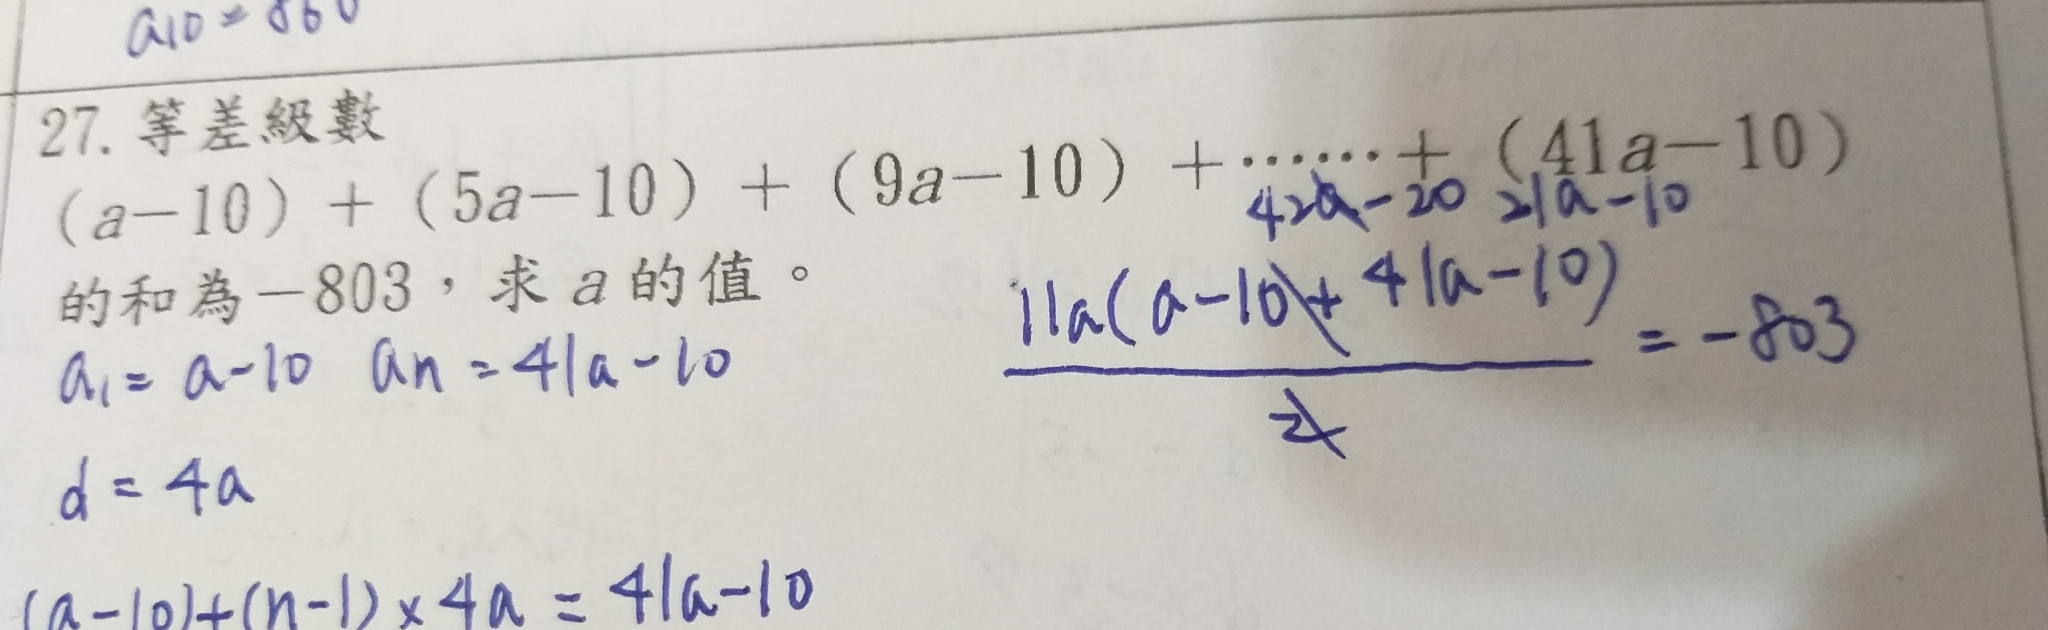 a10 = 860
27. 等差級數
(a-10)+(5a-10)+(9a-10)+……+(41a-10)
42a-20 21a-10
的和為-803,求a的值。
a1 = a-10 an = 41a-10
11a(a-10+41a-10)
= -803
2
d = 4a
(a-10)+(n-1)×4a = 41a-10